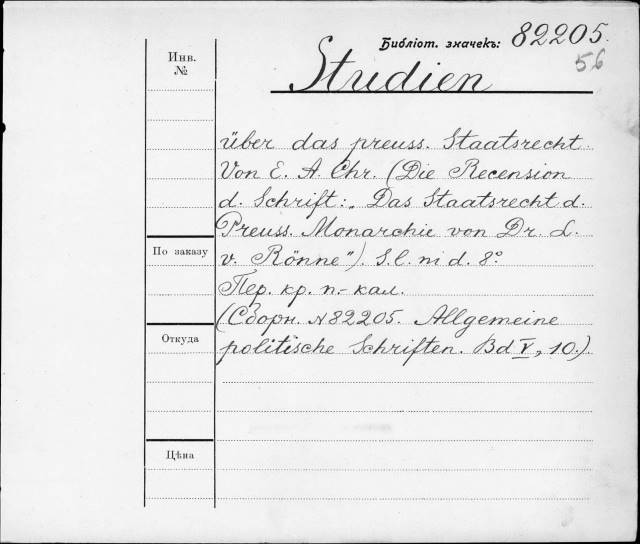 Библіот. значекъ: 82205.
56
Инв.
№
Studien
über das preuss. Staatsrecht.
Von E. A. Chr. (Die Recension
d. Schrift: „Das Staatsrecht d.
Preuss. Monarchie von Dr. L.
По заказу
v. Rönne"). S. l. ni d. 8°.
Пер. кр. п.- кал.
(Сборн. №82205. Allgemeine
Откуда
politische Schriften. Bd V, 10.)
Цѣна